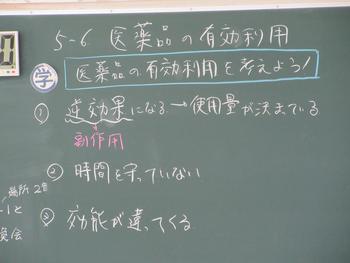 5-6. 医薬品の有効利用
学 医薬品の有効利用を考えよう!
① 逆効果になる → 使用量が決まている
副作用
② 時間を守っていない
場所 2
③ 効能が違ってくる